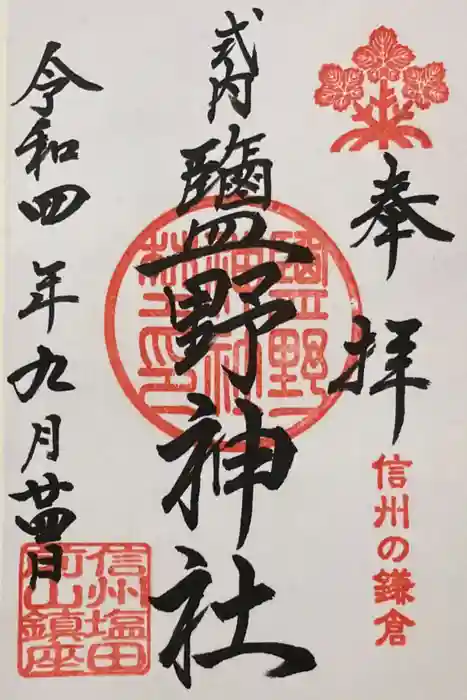 奉拝
信州の鎌倉
式内
鹽野神社
令和四年九月廿四日
信州塩田
前山鎮座